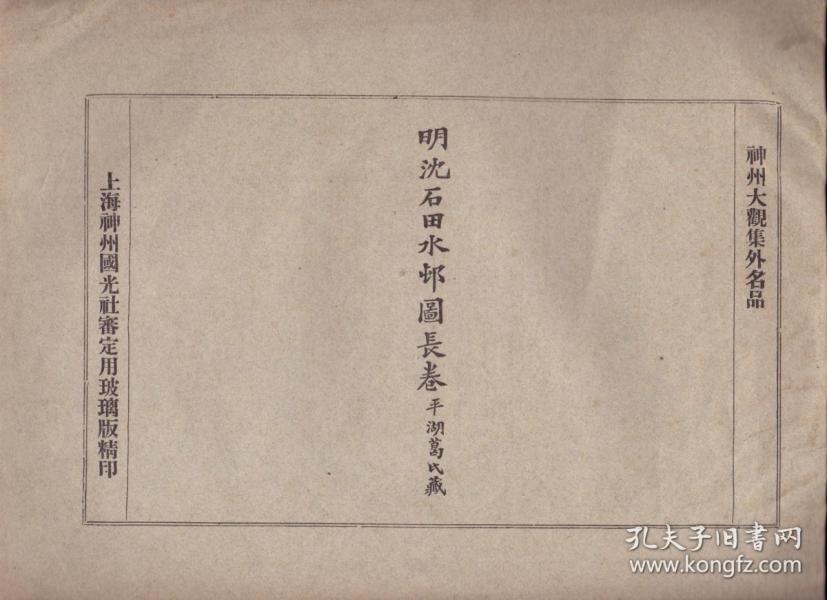 神州大觀集外名品
明沈石田水邨圖長卷 平湖葛氏藏
上海神州國光社審定用玻璃版精印
孔夫子旧書网
www.kongfz.com